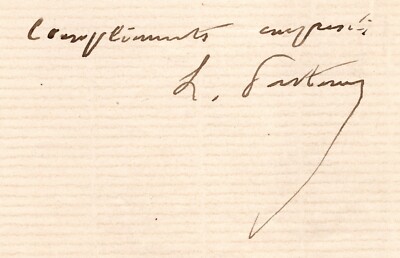 Compliments empressés
L. Pasteur